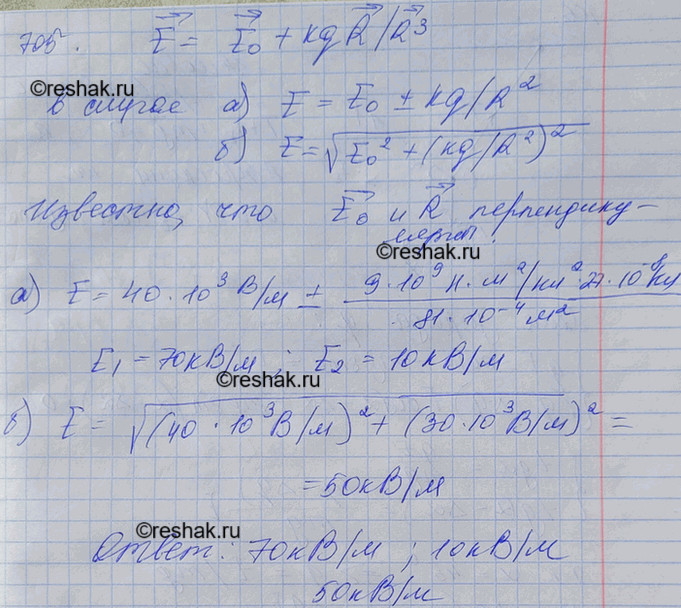 705. E⃗ = E⃗₀ + kq R⃗/R³
©reshak.ru
в случае а) E = E₀ ± kq/R²
б) E = √(E₀² + (kq/R²)²)
Известно, что E⃗₀ и R⃗ перпендику-
лярны.
©reshak.ru
а) E = 40·10³ В/м ± 9·10⁹ Н·м²/Кл² 27·10⁻⁹ Кл
81·10⁻⁴ м²
E₁ = 70кВ/м ; E₂ = 10кВ/м
©reshak.ru
б) E = √((40·10³ В/м)² + (30·10³ В/м)²) =
= 50кВ/м
©reshak.ru
Ответ: 70кВ/м ; 10кВ/м
50кВ/м